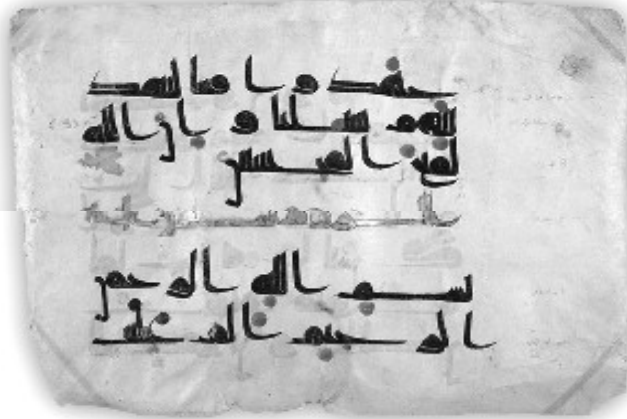 جهدوا فينا لنهد
ينهم سبلنا و ان الله
لمع المحسنين
بسم الله الرحمن
الرحيم الم غلبت